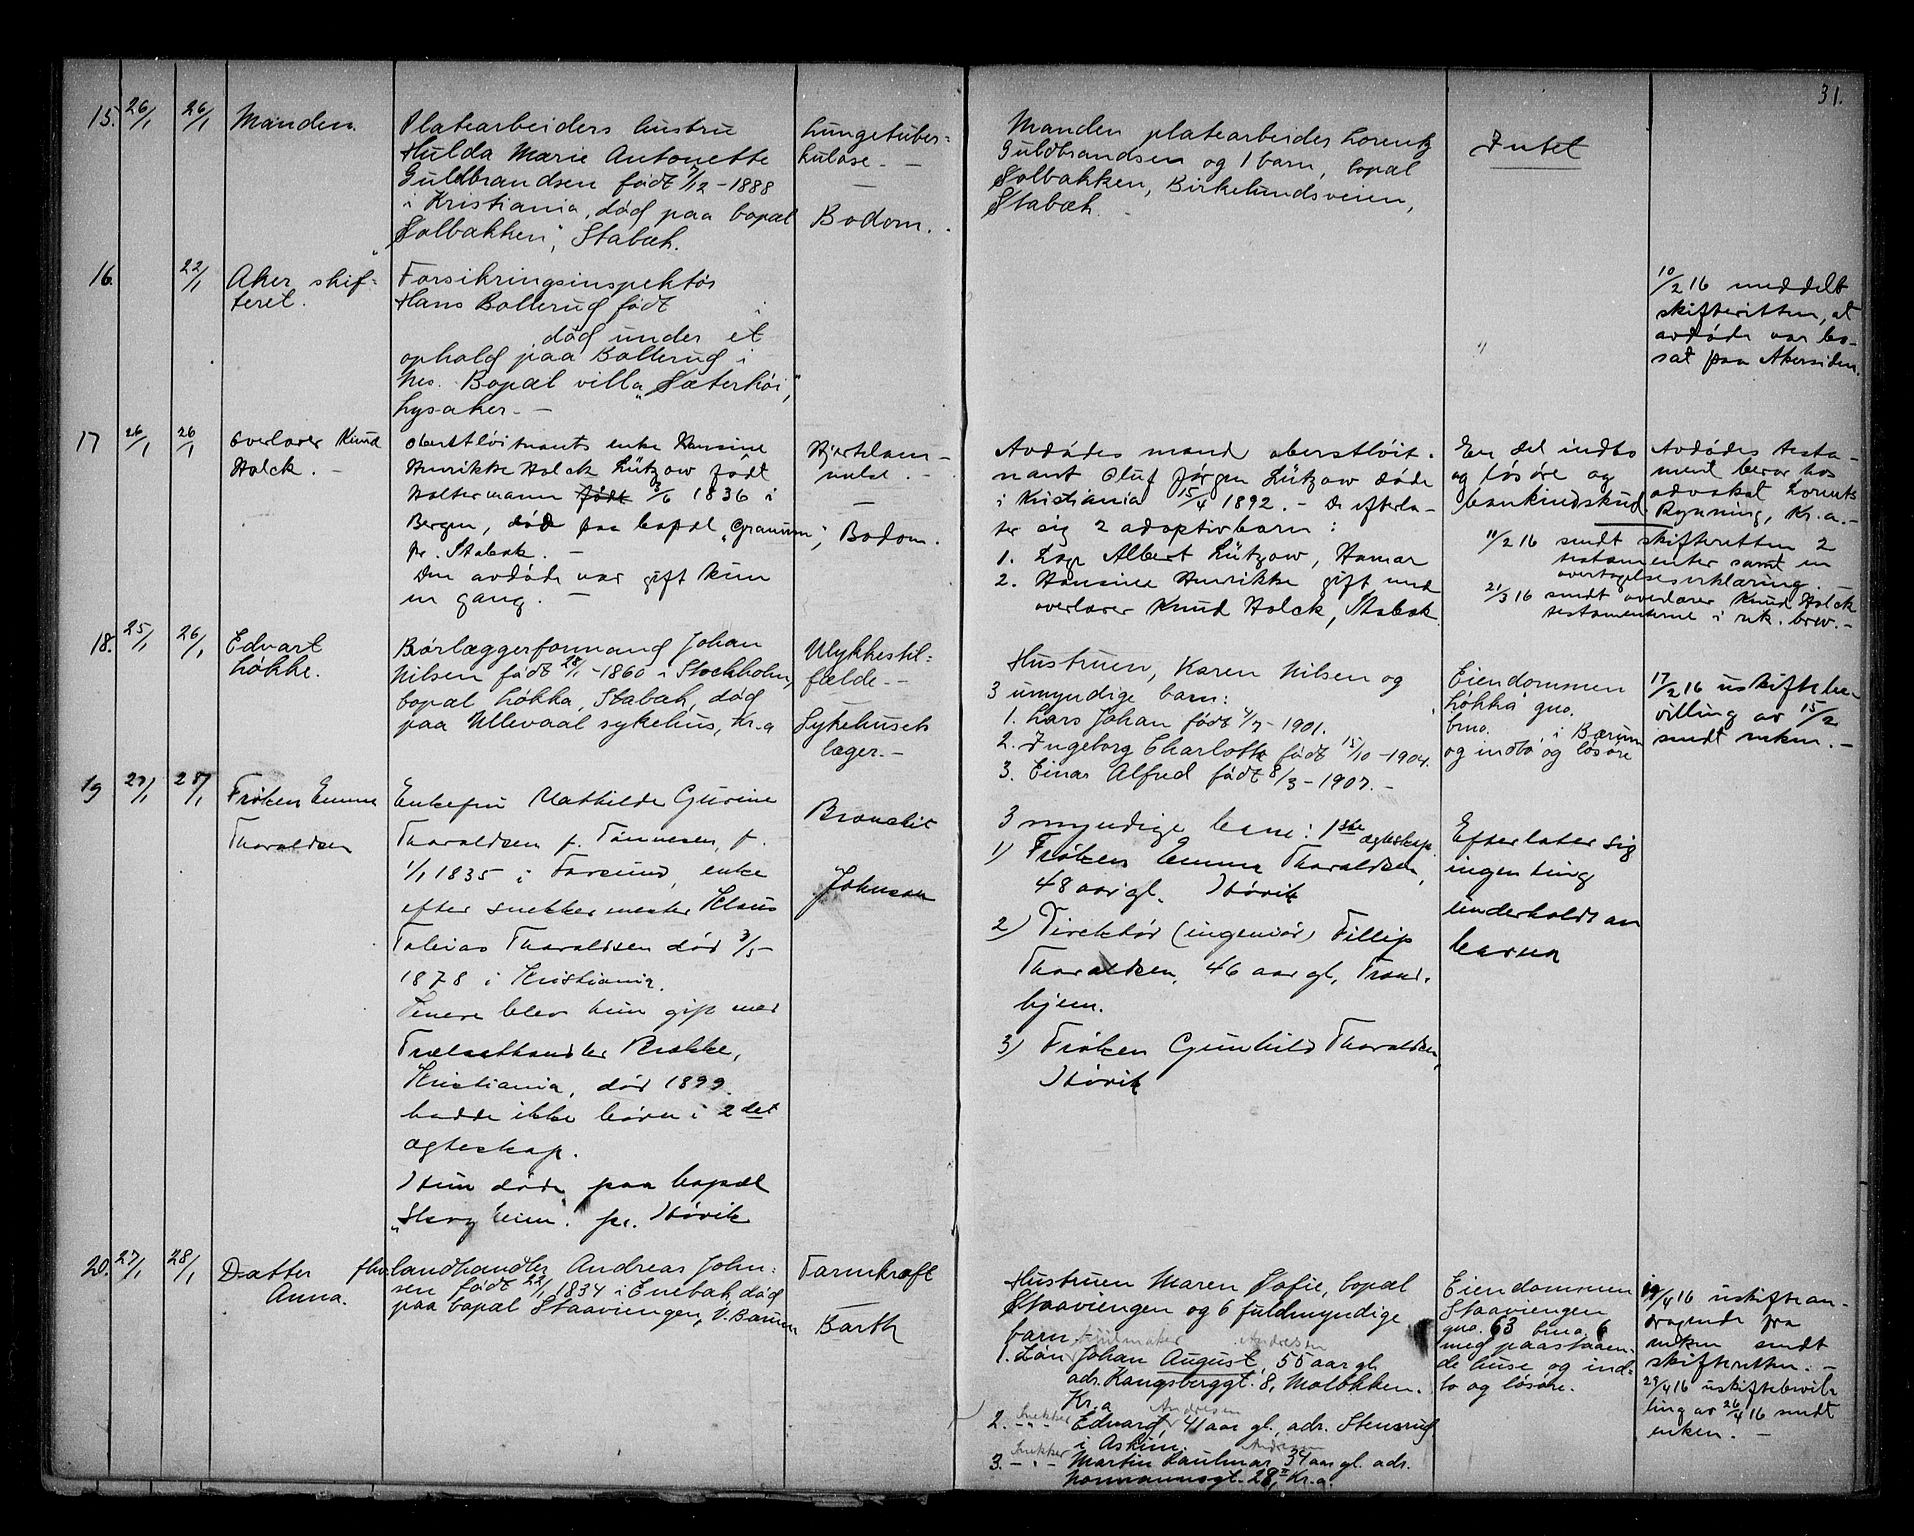 31.
15. 26/1 26/1 Manden.
Platearbeiders hustru
Hulda Marie Antonette
Guldbrandsen født 7/12 - 1888
i Kristiania, død paa bopæl
"Solbakken", Stabæk.
Lungetuber-
kulose. -
Bodom.
Manden platearbeider Lorentz
Guldbrandsen og 1 barn, bopæl
Solbakken, Birkelundsveien,
Stabæk.
Intet
16. 22/1 Aker skif-
teret.
Forsikringsinspektør
Hans Bollerud født
død under et
ophold paa Bollerud i
Nes. Bopæl villa "Sæterhøi",
Lysaker. -
"
10/2 16 meddelt
skifteretten, at
avdøde var bo-
sat paa Akersiden.
17 26/1 26/1 Overlærer Knud
Holck. -
Oberstløitnants enke Hansine
Henrikke Holck Lützow født
Holtermann født 3/6 1836 i
Bergen, død paa bopæl "Granum",
pr. Stabæk. -
Den avdøde var gift kun
en gang. -
Hjertelam-
melse. -
Bodom.
Avdødes mand oberstløit-
nant Oluf Jørgen Lützow døde
i Kristiania 15/4 1892. - De efterla-
ter sig 2 adoptivbarn:
1. Albert Lützow, Hamar
2. Hansine Henrikke gift med
overlærer Knud Holck, Stabæk.
En del indbo
og løsøre og
bankindskud.
Avdødes testa-
ment beror hos
advokat Lorentz
Rynning, Kr.a. -
11/2 16 sendt skifteretten 2
testamenter samt en
overtagelseserklæring. -
21/3 16 sendt overlærer Knud Holck
testamenterne i rek. brev. -
18. 25/1 26/1 Edvart
Løkke.
Rørlæggerformand Johan
Nilsen født 28/1 - 1860 i Stockholm,
bopæl Løkka, Stabæk, død
paa Ullevaal sykehus, Kr.a
Ulykkestil-
fælde. -
Sykehusets
læger. -
Hustruen, Karen Nilsen og
3 umyndige barn:
1. Lars Johan født 4/7 - 1901.
2. Ingeborg Charlotte født 15/10 - 1904.
3. Einar Alfred født 8/3 - 1907. -
Eiendommen
Løkka gno.
bno. i Bærum
og indbo og løsøre
17/2 16 uskiftebe-
villing av 15/2
sendt enken. -
19 27/1 28/1 Frøken Emma
Tharaldsen
Enkefru Mathilde Gurine
Tharaldsen f. Tønnesen, f.
1/1 1835 i Farsund, enke
efter snekkermester Klaus
Tobias Tharaldsen død 3/5 -
1878 i Kristiania.
Senere blev hun gift med
Trælasthandler Brække,
Kristiania, død 1899.
hadde ikke børn i 2det
ægteskap.
Hun døde paa bopæl
" pr. Høvik
Bronchit
Johnson
3 myndige barn: 1ste ægteskap.
1) Frøken Emma Tharaldsen,
48 aar gl. Høvik
2) Direktør (ingeniør) Fillip
Tharaldsen, 46 aar gl, Trond-
hjem.
3) Frøken Gunhild Tharaldsen,
Høvik
Efterlater sig
ingenting
underholdt av
barna
20. 27/1 28/1 Datter
Anna.
fhv. landhandler Andreas John-
sen født 22/1 1834 i Enebak, død
paa bopæl Staaviengen, V. Bærum
Tarmkræft
Barth
Hustruen Maren Sofie, bopæl
Staaviengen og 6 fuldmyndige
barn
hjulmaker Andresen
1. Søn Johan August, 55 aar gl.
adr. Kongsberggt. 8, Moløkken.
Kr.a
Andresen
2. Snekker Edvard, 41 aar gl., adr. Stensrud
i Askim.
Andresen
3. Snekker - " - Martin Haulmar 34 aar gl. adr.
Normannsgt. 28, II Kr.a.
Eiendommen
Staaviengen
gno. 63 bno. 6
med paastaaen-
de huse og ind-
bo og løsøre.
19/4 16 uskiftean-
dragende fra
enken sendt
skifteretten. -
29/4 16 uskiftebevil-
ling av 26/4 16 sendt
enken. -